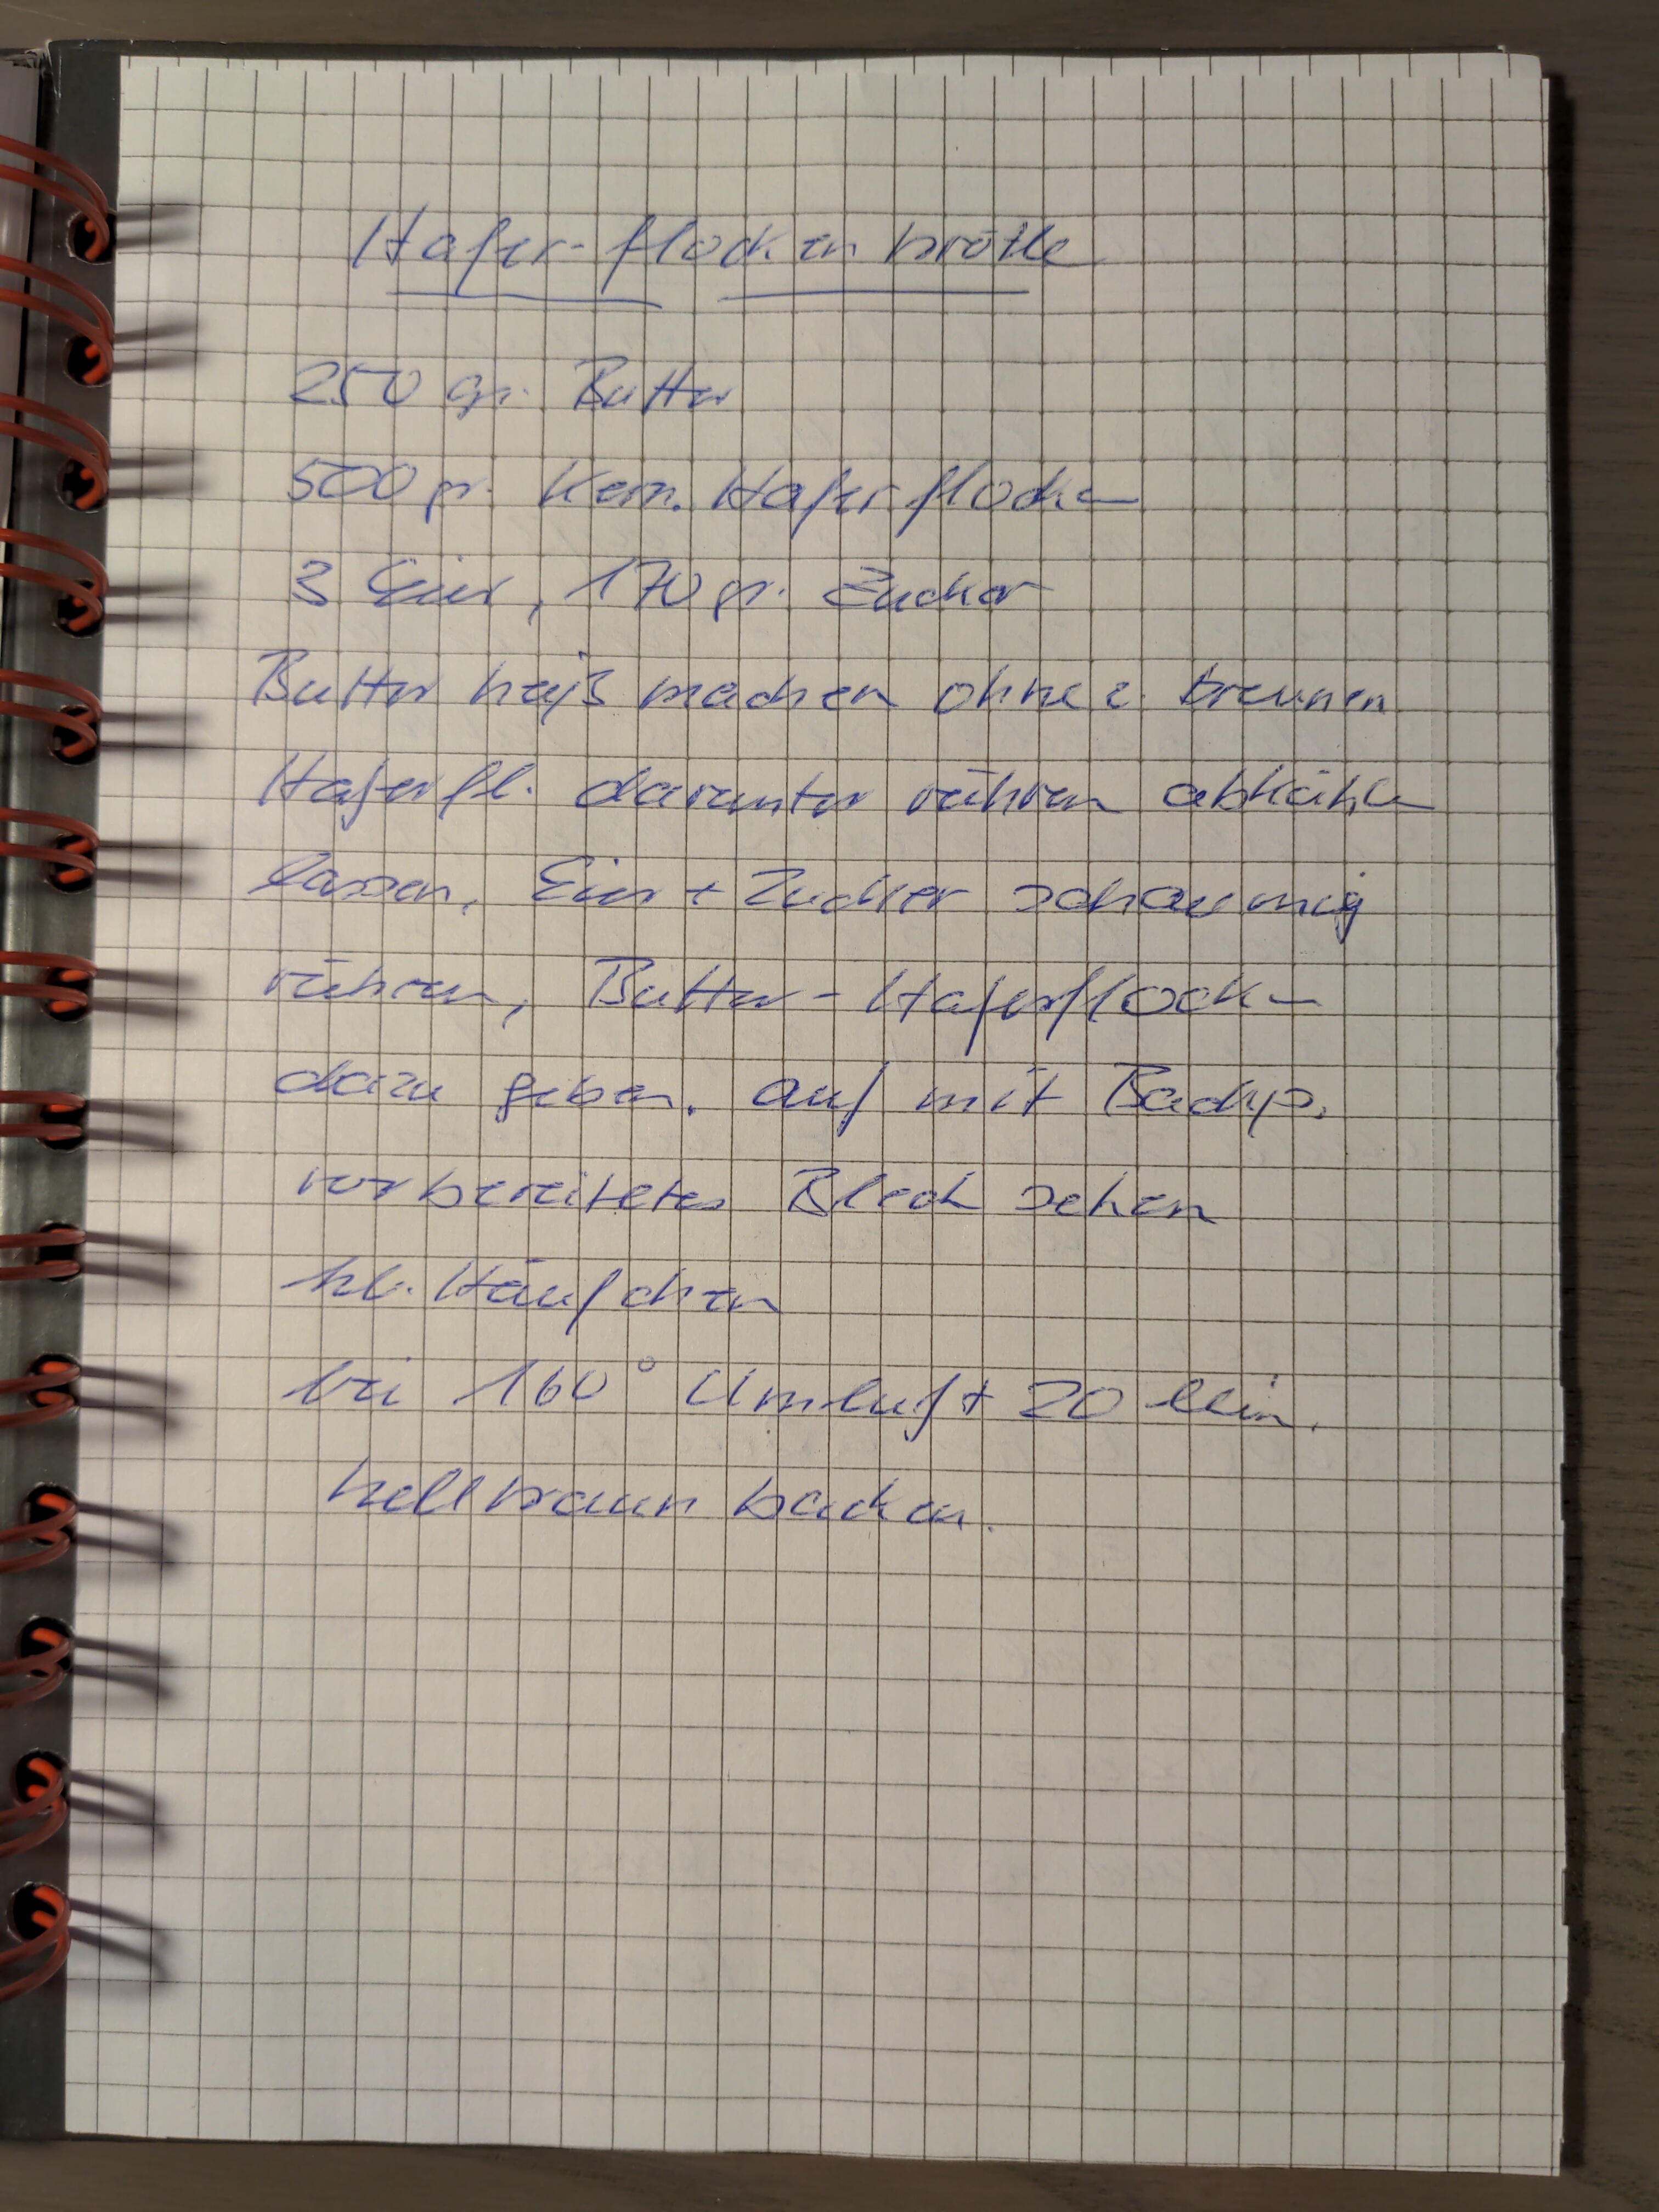 Hafer-flocken brötle
250 gr. Butter
500 gr. Kern. Haferflocken
3 Eier, 170 gr. Zucker
Butter heiß machen ohne z. breunen
Haferfl. darunter rühren abkühlen
lassen, Eier + Zucker schaumig
rühren, Butter - Haferflocken
dazu geben. auf mit Backp.
vorbereitetes Blech sehen
kl. Häufchen
bei 160° Umluft 20 Min.
hellbraun backen.